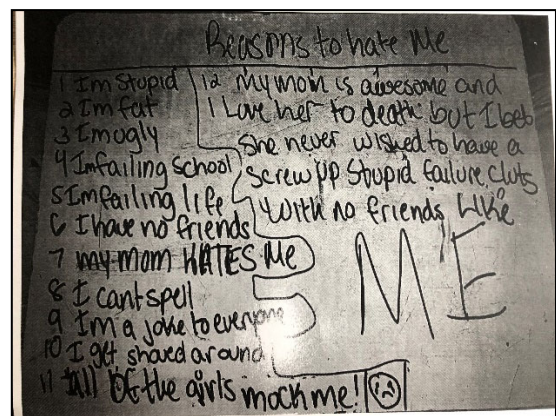 Reasons to hate Me
1 Im Stupid
2 Im fat
3 Im ugly
4 Im failing School
5 Im failing life
6 I have no friends
7 my mom HATES Me
8 I cant spell
9 Im a joke to everyone
10 I get shoved around
11 All of the girls mock me!
12 My mom is awesome and
I Love her to death but I bet
She never wished to have a
screw up Stupid failure cluts
with no friends Like
ME